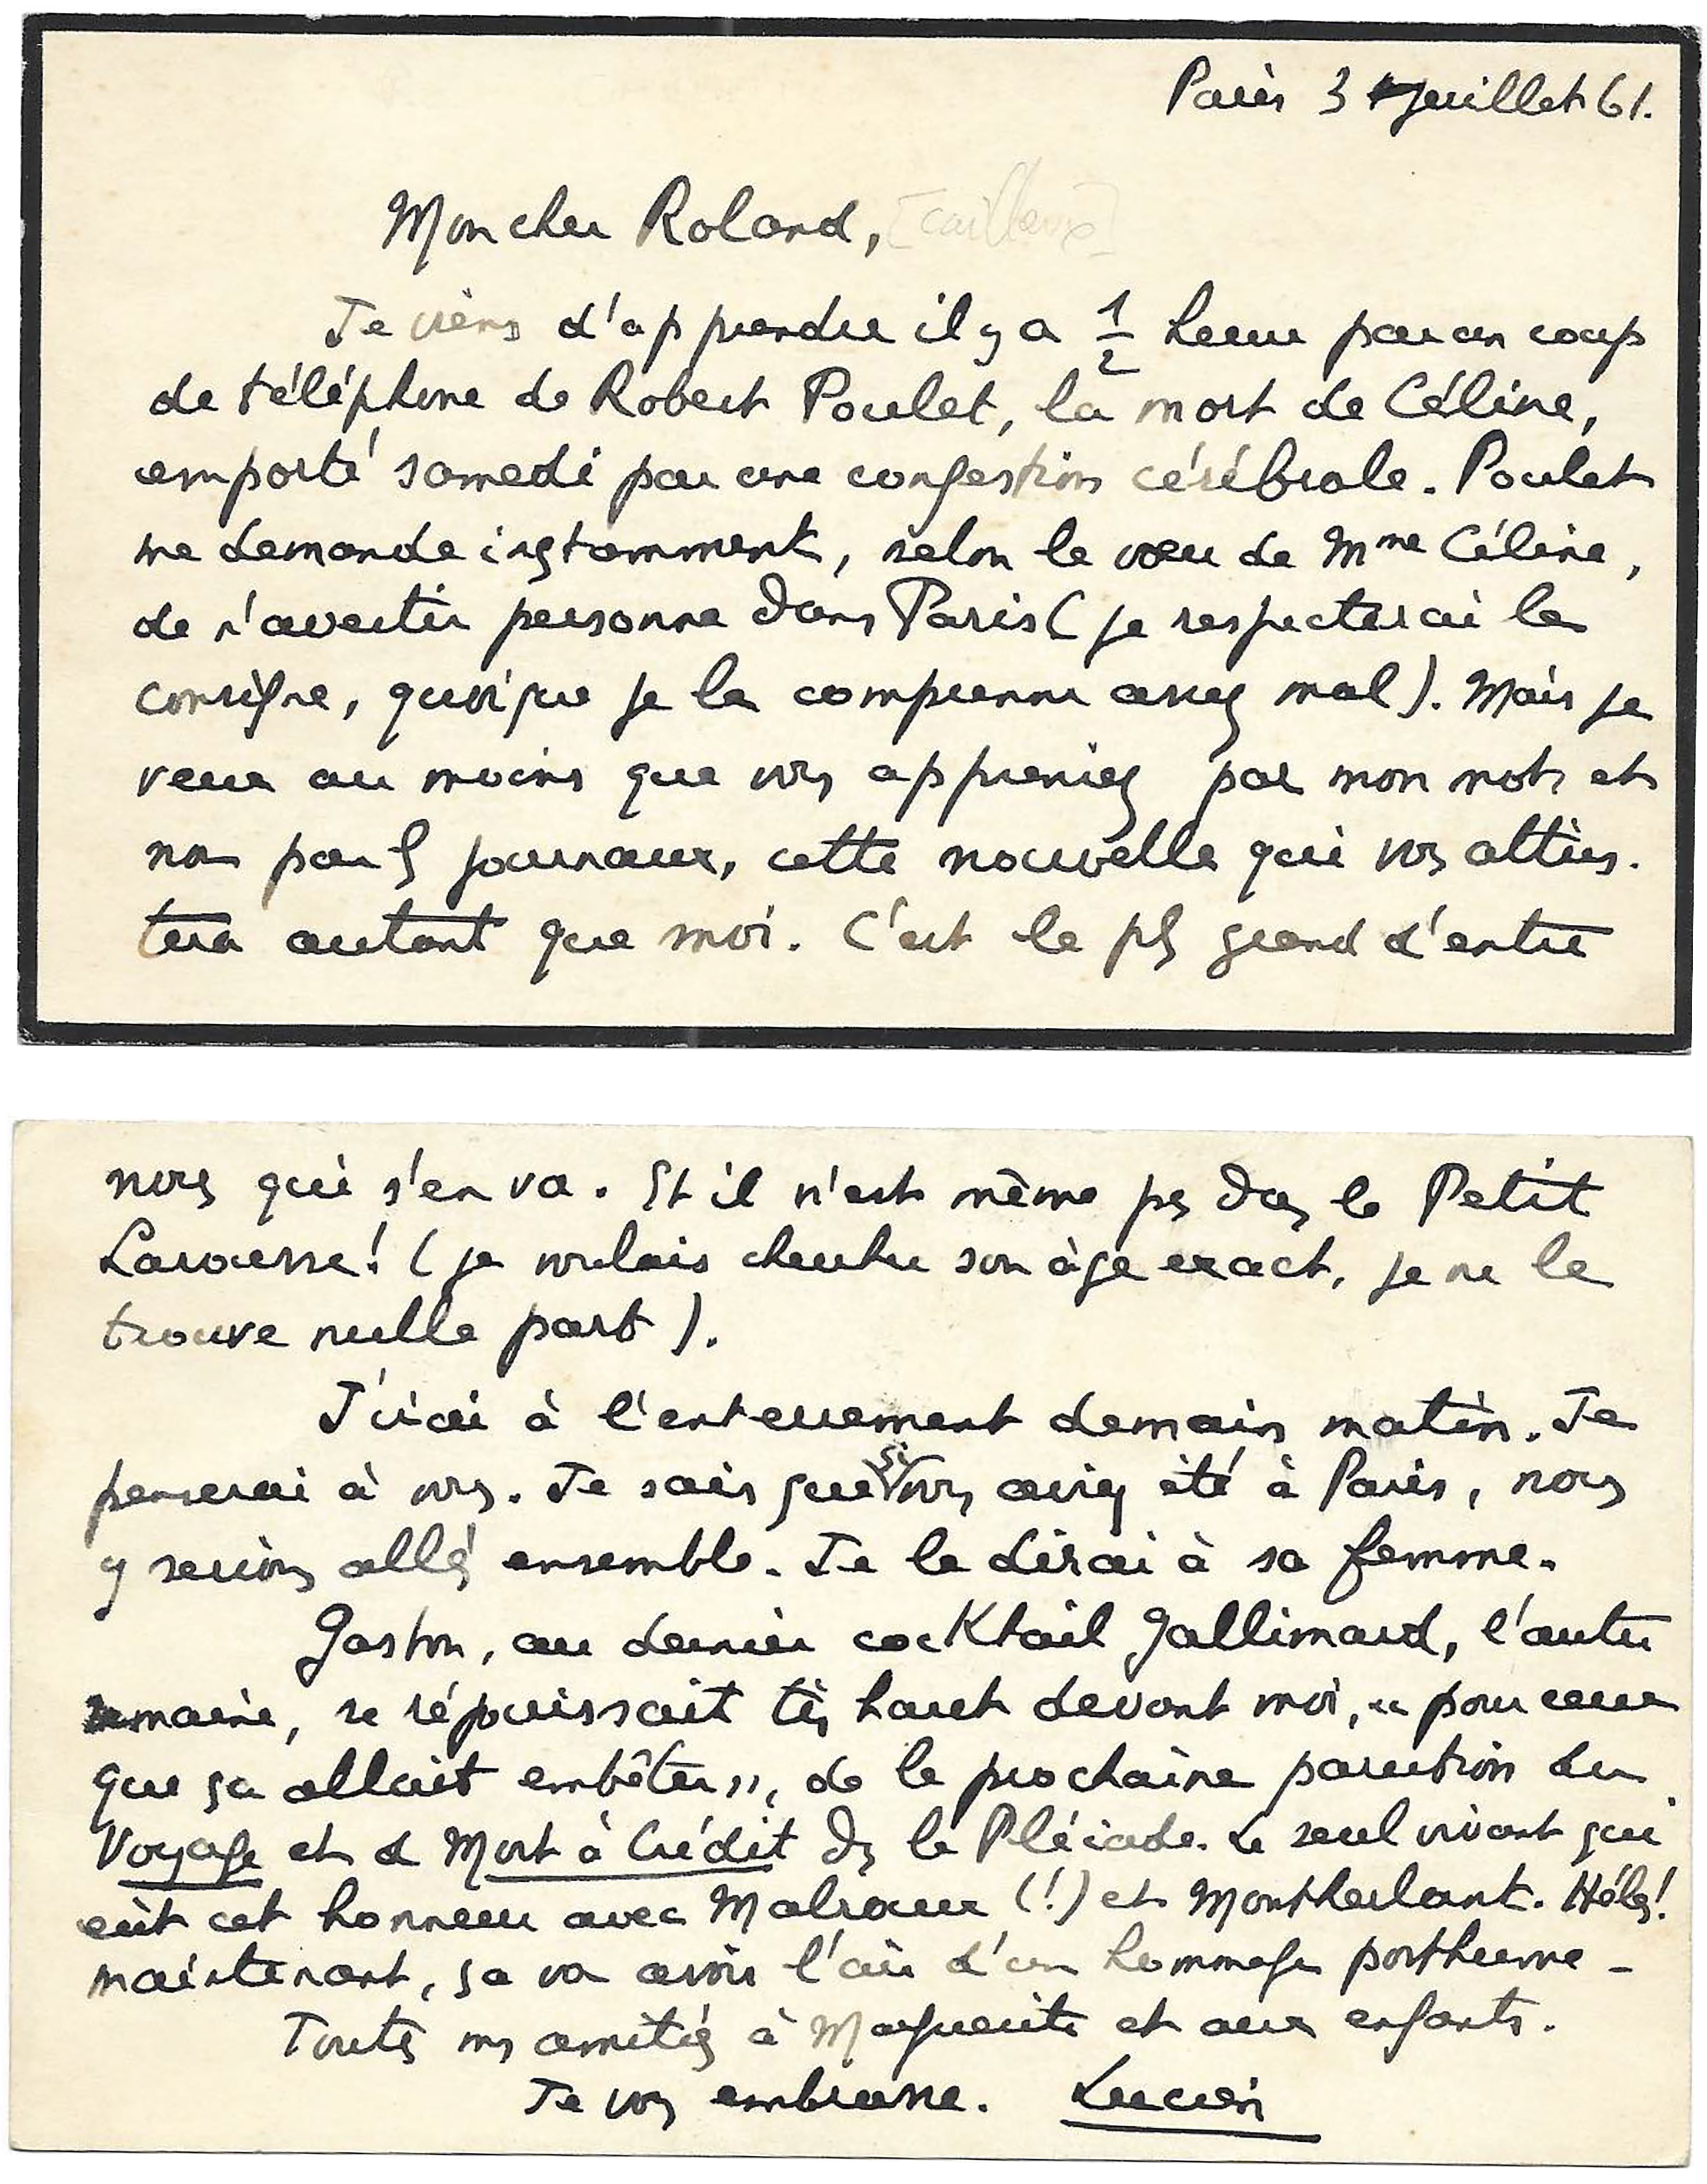 Paris 3 juillet 61.
Mon cher Roland, [Cailleux]
Je viens d'apprendre il y a 1/2 heure par un coup
de téléphone de Robert Poulet, la mort de Céline,
emporté samedi par une congestion cérébrale. Poulet
me demande instamment, selon le vœu de Mme Céline,
de n'avertir personne dans Paris (je respecterai la
consigne, quoique je la comprenne assez mal). Mais je
veux au moins que vous appreniez par mon mot et
non par ls journaux, cette nouvelle qui vos attris-
tera autant que moi. C'est le pls grand d'entre
nous qui s'en va. Et il n'est même ps das le Petit
Larousse! (je voulais chercher son âge exact, je ne le
trouve nulle part).
J'irai à l'enterrement demain matin. Je
penserai à vous. Je sais que si vous aviez été à Paris, nous
y serions allés ensemble. Je le dirai à sa femme.
Gaston, au dernier cocKtail Gallimard, l'autre
semaine, se réjouissait très haut devant moi, « pour ceux
que ça allait embêter », de la prochaine parution du
Voyage et d Mort à Crédit ds la Pléiade. Le seul vivant qui
eût cet honneur avec Malraux (!) et Montherlant. Hélas!
maintenant, ça va avoir l'air d'un hommage posthume -
Touts ms amitiés à Marguerite et aux enfants.
Je vous embrasse. Lucien